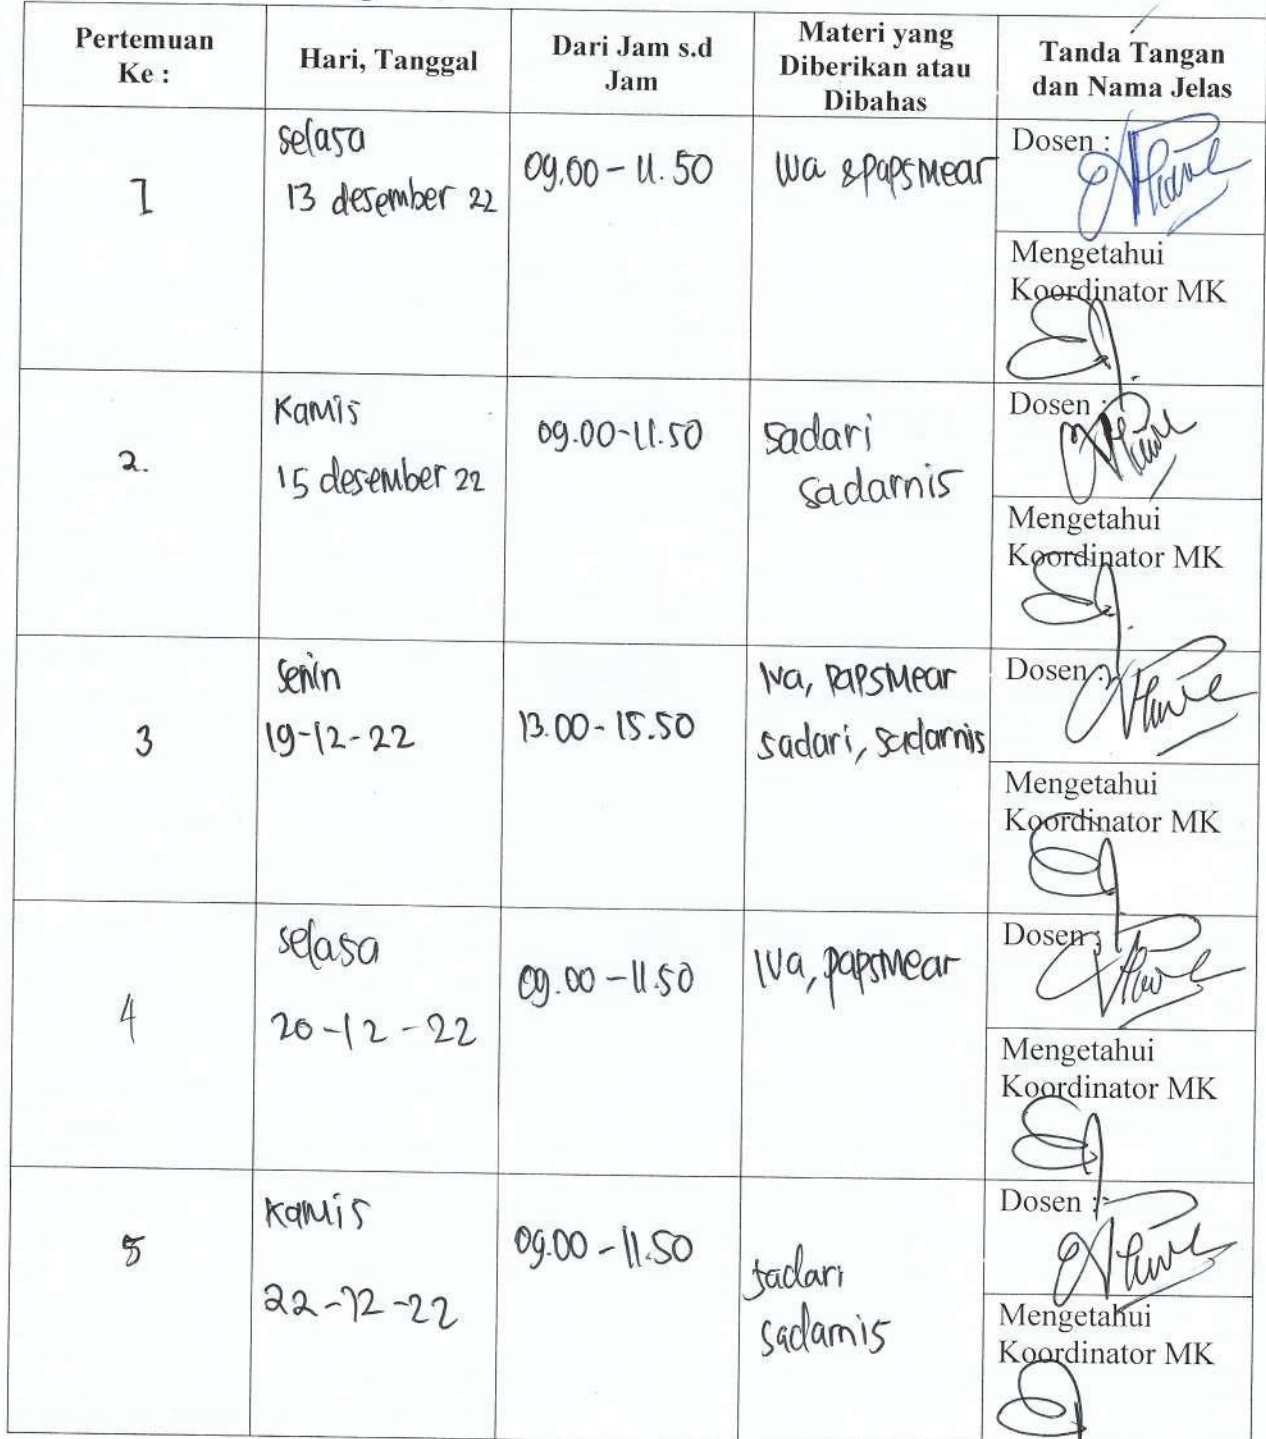 Pertemuan
Ke :
Hari, Tanggal
Dari Jam s.d
Jam
Materi yang
Diberikan atau
Dibahas
Tanda Tangan
dan Nama Jelas
1
selasa
13 desember 22
09.00 - 11.50
Iva & papsmear
Dosen :
Mengetahui
Koordinator MK
2.
Kamis
15 desember 22
09.00-11.50
sadari
sadarnis
Dosen :
Mengetahui
Koordinator MK
3
Senin
19-12-22
13.00 - 15.50
Iva, papsmear
sadari, sadarnis
Dosen :
Mengetahui
Koordinator MK
4
selasa
20-12-22
09.00 - 11.50
Iva, papsmear
Dosen :
Mengetahui
Koordinator MK
5
Kamis
22-12-22
09.00 - 11.50
sadari
sadarnis
Dosen :
Mengetahui
Koordinator MK